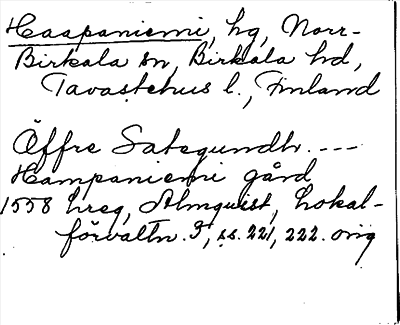 Haapaniemi, hg, Norr-
Birkala sn, Birkala hd,
Tavastehus l., Finland
Öffre Satagundh. ----
Hampaniemi gård
1558 hreg, Almquist, Lokal-
förvaltn. I, ss. 221, 222. orig